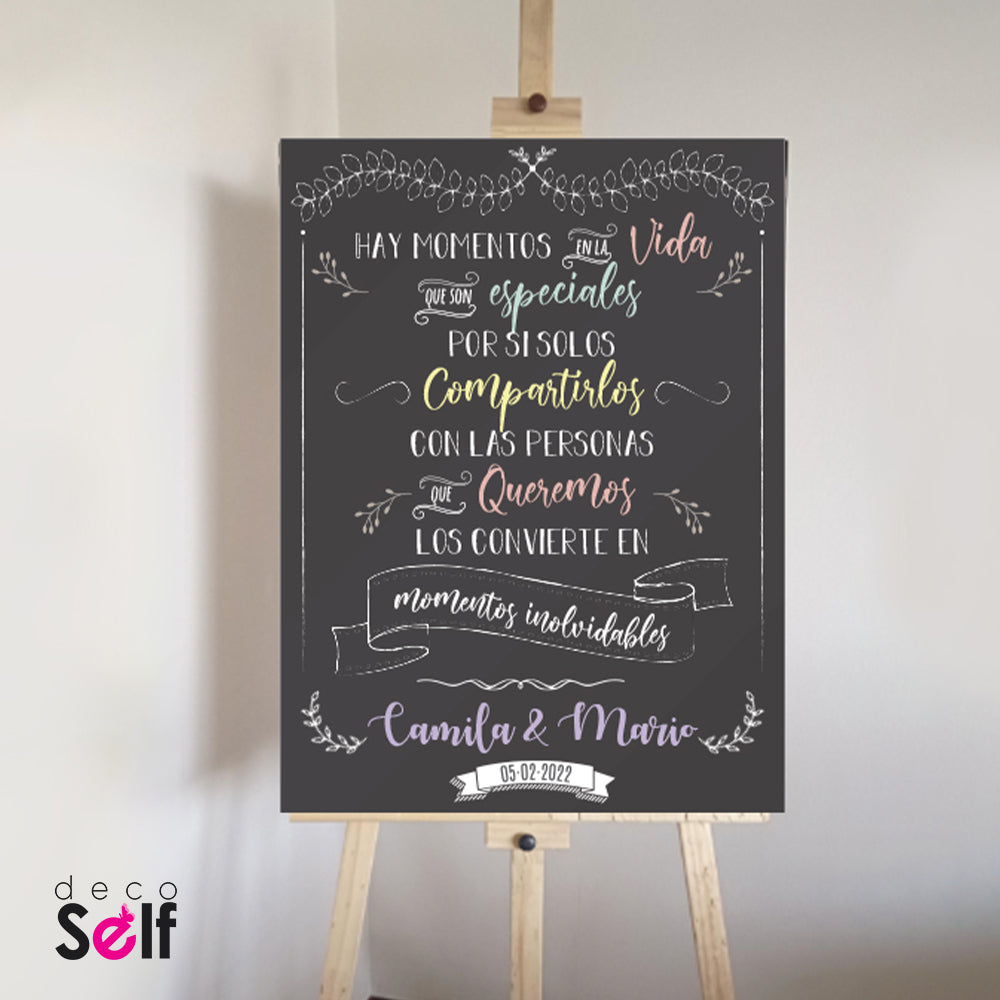 HAY MOMENTOS EN LA Vida
QUE SON especiales
POR SI SOLOS
Compartirlos
CON LAS PERSONAS
QUE Queremos
LOS CONVIERTE EN
momentos inolvidables
Camila & Mario
05-02-2022
deco
Self